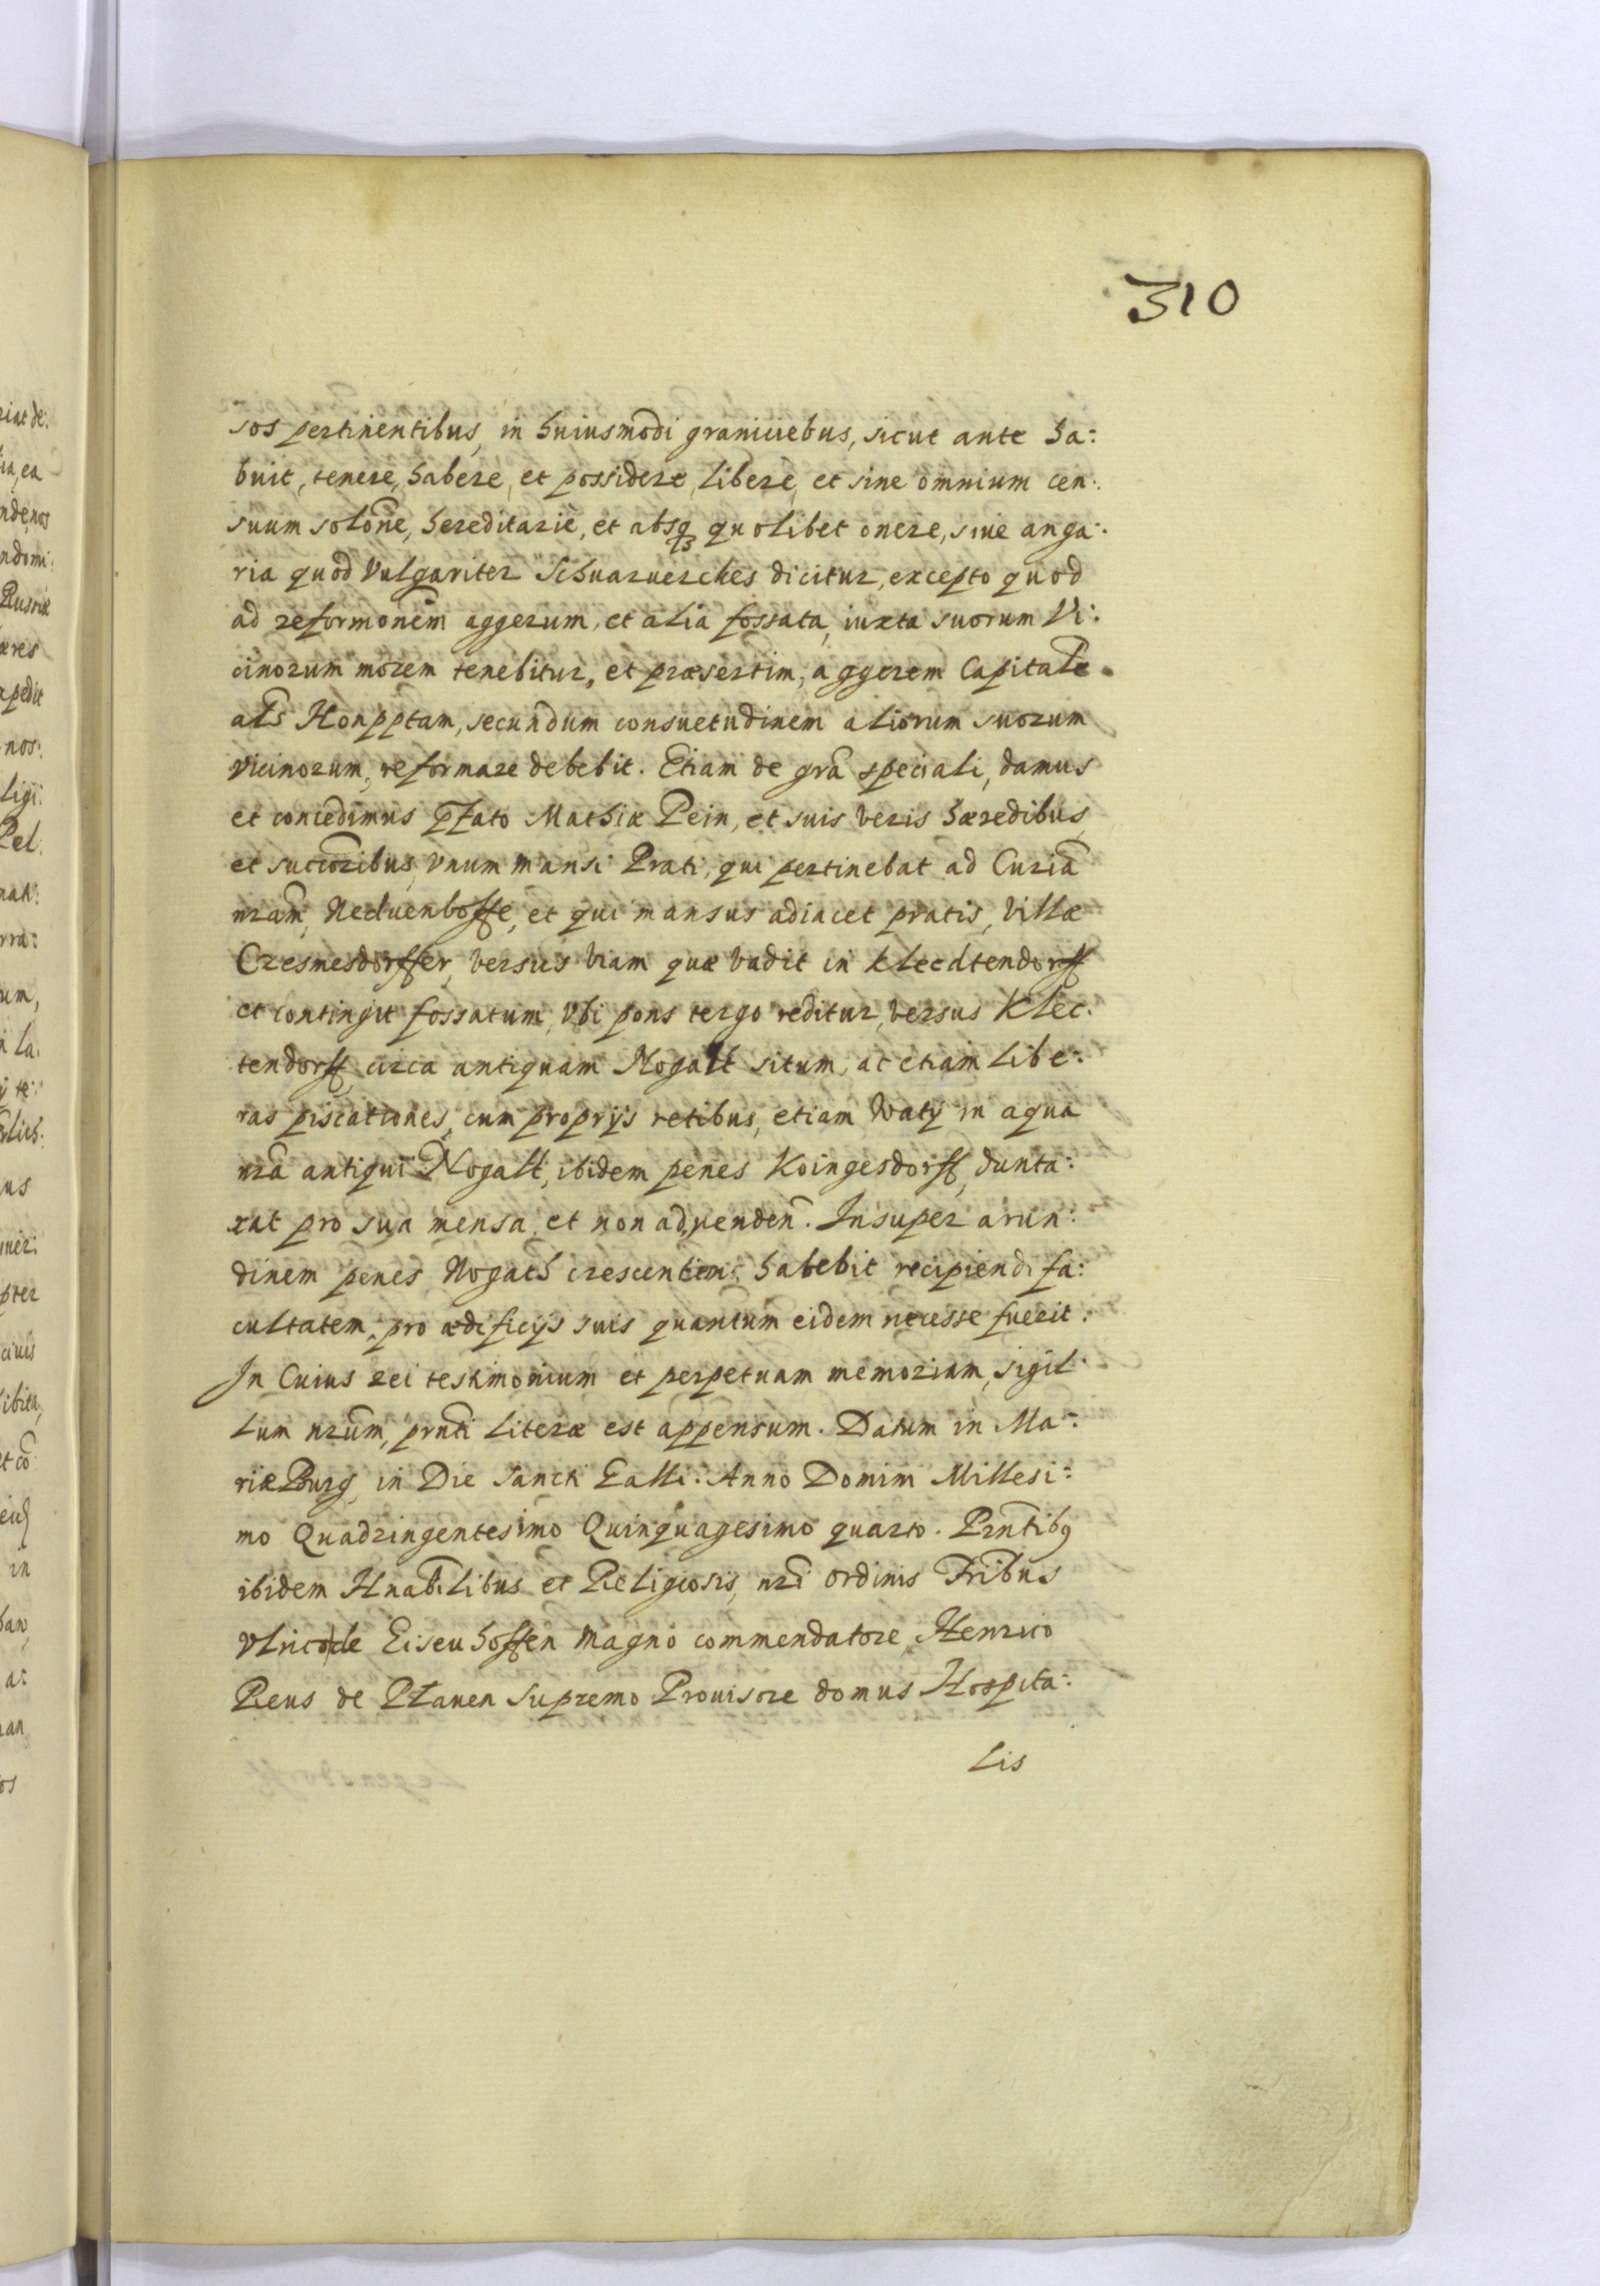 310
sos pertinentibus, in huiusmodi graniciebus, sicut ante ha:
buit, tenere, habere, et possidere, libere, et sine omnium cen:
suum solone, hereditarie, et absq quolibet onere, siue anga:
ria quod Vulgariter Schuaruerches dicitur, excepto quod
ad reformonem aggerum, et alia fossata, iuxta suorum Vi:
cinorum morem tenebitur, et præsertim, aggerem Capitale
als Honpptam, secundum consuetudinem aliorum suorum
vicinorum, reformare debebit. Etiam de gra speciali, damus
et concedimus Pfato Mathiæ Pein, et suis veris hæredibus,
et succoribus, vnum mansi Prati, qui pertinebat ad Curia
nram, Neduenhoffe, et qui mansus adiacet pratis, Villæ
Czesmesdorffer, versus viam quæ vadit in Kleedtendorff
et contingit fossatum, vbi pons tergo reditur, versus Klec:
tendorff, circa antiquam Nogatt situm, ac etiam libe:
ras piscationes, cum proprijs retibus, etiam Waty in aqua
nra antiqui Nogatt, ibidem penes Koingesdorff, dunta:
xat pro sua mensa, et non advenden. Insuper arun:
dinem penes Nogath crescentem habebit recipiendi fa:
cultatem, pro ædificijs suis quantum eidem necesse fuerit:
In Cuius rei testimonium et perpetuam memoriam, sigil
lum nrum, prnti literæ est appensum. Datum in Ma:
riæPurg, in Die Sancti Ealli. Anno Domini Millesi:
mo Quadringentesimo Quinquagesimo quarto. Prntibq
ibidem Hnabilibus et Religiosis, nri ordinis Fribus
Vlrico de Eiseuhoffen Magno commendatore, Henrico
Reus de Plauen Supremo Prouisore domus Hospita:
lis